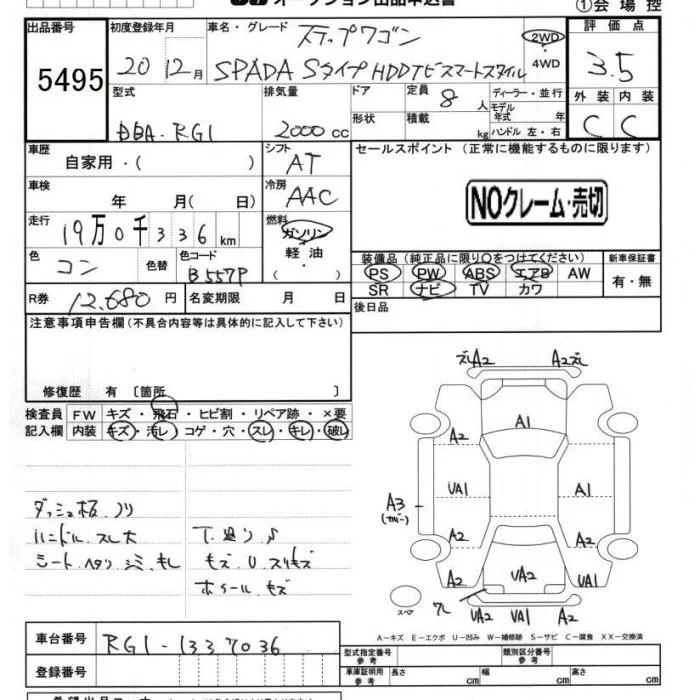 オークション出品申込書
①会場控
出品番号 初度登録年月 車名・グレード 評価点
ステップワゴン 2WD・4WD
5495 20 12月 SPADA Sタイプ HDDナビスマートスタイル 3.5
型式 排気量 ドア 定員 8 人 ディーラー・並行 外装 内装
モデル年式 年
DBA-RG1 2000cc 形状 積載 kg ハンドル 左・右 C C
車歴 自家用・( ) シフト AT セールスポイント(正常に機能するものに限ります)
車検 年 月( 日) 冷房 AAC NOクレーム・売切
走行 19万0千336km 燃料 ガソリン・軽油・( )
色 コン 色替 色コード B557P
装備品(純正品に限り○をつけてください) 新車保証書
PS PW ABS エアB AW 有・無
SR ナビ TV カワ
R券 12,680円 名変期限 月 日
後日品
注意事項申告欄(不具合内容等は具体的に記入して下さい)
修復歴 有 〔箇所 〕
検査員記入欄 FW キズ・飛石・ヒビ割・リペア跡・×要
内装 キズ・汚レ・コゲ・穴・スレ・キレ・破レ
ダッシュ板、ノリ
ハンドル、スレ大
シート、ヘタリ、シミ、キレ
キズ、U、スリキズ
ホイール、キズ
ズレA2 A2ズレ
A1
A2 A2
A3 UA1 A1
(カバー)
A2 A2
A2 UA2 UA1
スペア
UA2 UA1 A2
A-キズ E-エクボ U-凹み W-補修跡 S-サビ C-腐食 XX-交換済
車台番号 RG1-1337036
登録番号
型式指定番号 参考 類別区分番号 参考
車庫証明用 参考 長さ cm 幅 cm 高さ cm